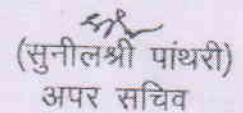 (सुनीलश्री पांथरी)
अपर सचिव